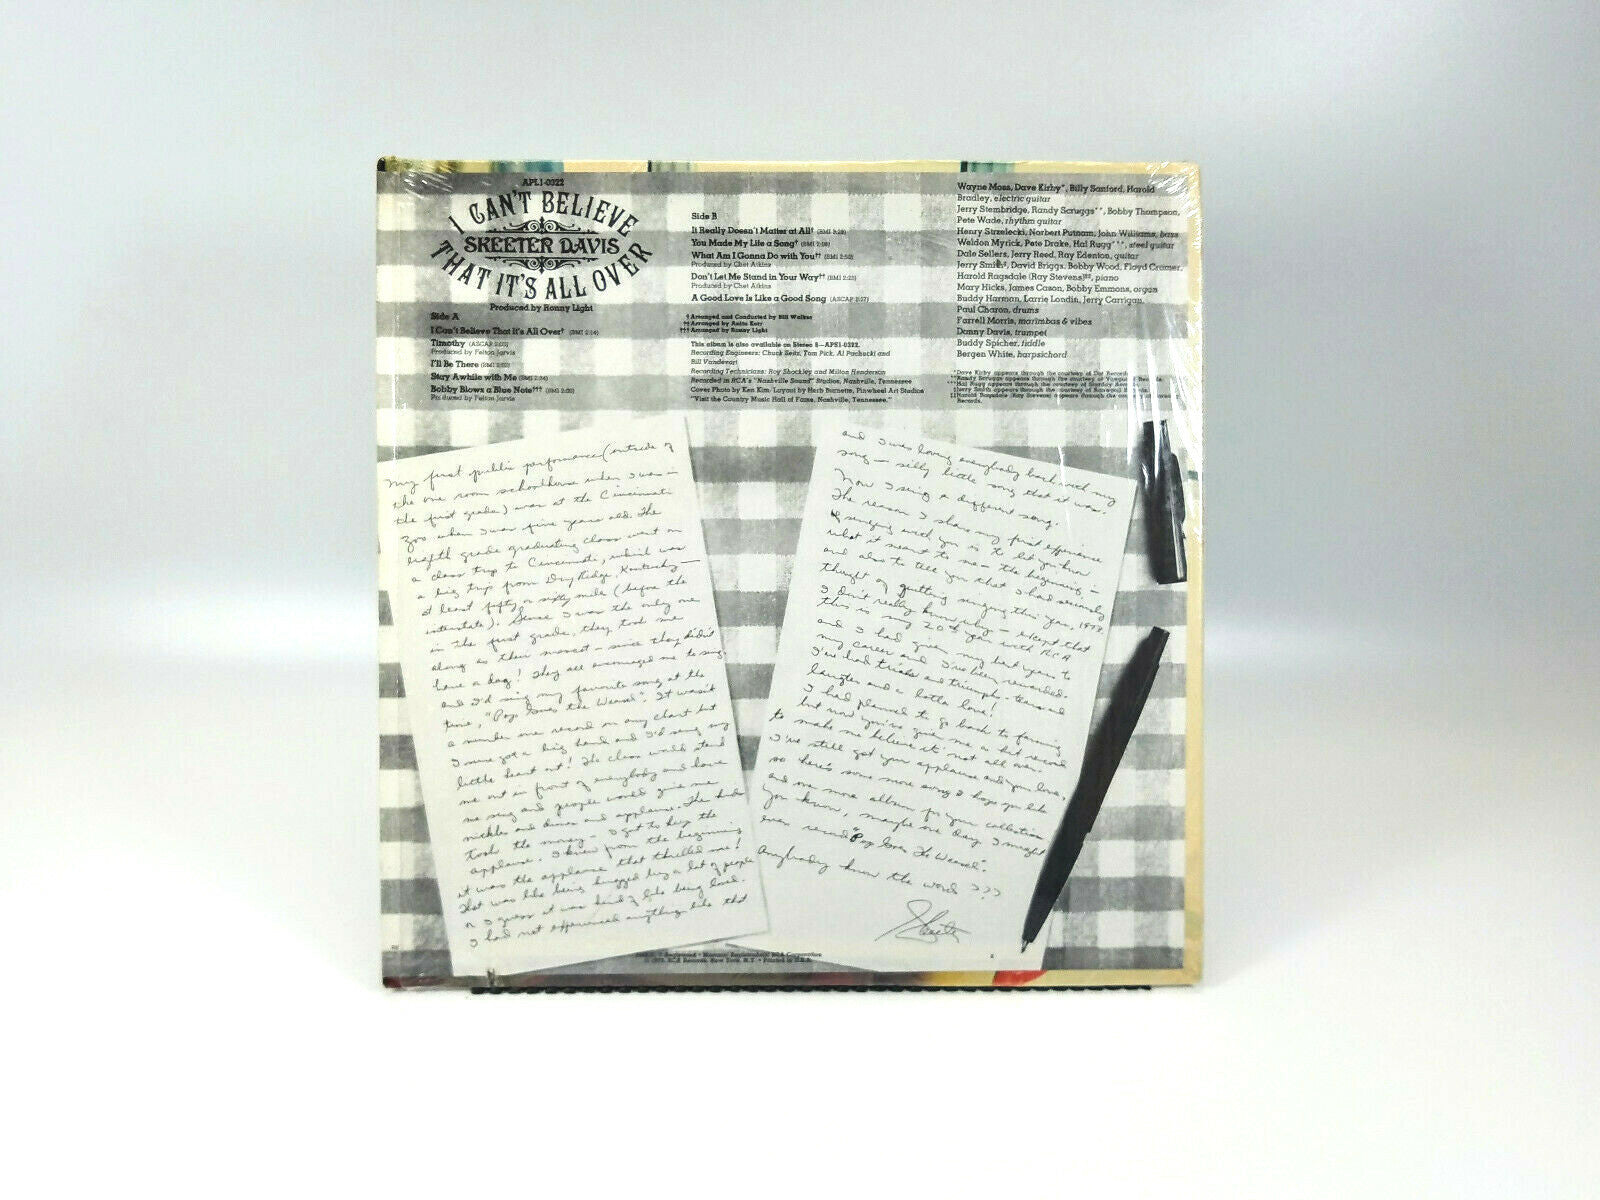 APL1-0322
I CAN'T BELIEVE
SKEETER DAVIS
THAT IT'S ALL OVER
Produced by Ronny Light
Side A
I Can't Believe That It's All Over† (BMI 2:14)
Timothy (ASCAP 2:03)
Produced by Felton Jarvis
I'll Be There (BMI 2:02)
Stay Awhile with Me (BMI 2:24)
Bobby Blows a Blue Note††† (BMI 2:00)
Produced by Felton Jarvis
Side B
It Really Doesn't Matter at All† (BMI 3:28)
You Made My Life a Song† (BMI 2:08)
What Am I Gonna Do with You†† (BMI 2:52)
Produced by Chet Atkins
Don't Let Me Stand in Your Way†† (BMI 2:23)
Produced by Chet Atkins
A Good Love Is Like a Good Song (ASCAP 2:27)
† Arranged and Conducted by Bill Walker
†† Arranged by Anita Kerr
††† Arranged by Ronny Light
This album is also available on Stereo 8—APS1-0322.
Recording Engineers: Chuck Seitz, Tom Pick, Al Pachucki and
Bill Vandevort
Recording Technicians: Roy Shockley and Milton Henderson
Recorded in RCA's "Nashville Sound" Studios, Nashville, Tennessee
Cover Photo by Ken Kim; Layout by Herb Burnette, Pinwheel Art Studios
"Visit the Country Music Hall of Fame, Nashville, Tennessee."
Wayne Moss, Dave Kirby*, Billy Sanford, Harold
Bradley, electric guitar
Jerry Stembridge, Randy Scruggs**, Bobby Thompson,
Pete Wade, rhythm guitar
Henry Strzelecki, Norbert Putnam, John Williams, bass
Weldon Myrick, Pete Drake, Hal Rugg***, steel guitar
Dale Sellers, Jerry Reed, Ray Edenton, guitar
Jerry Smith‡, David Briggs, Bobby Wood, Floyd Cramer,
Harold Ragsdale (Ray Stevens)‡‡, piano
Mary Hicks, James Cason, Bobby Emmons, organ
Buddy Harman, Larrie Londin, Jerry Carrigan,
Paul Charon, drums
Farrell Morris, marimbas & vibes
Danny Davis, trumpet
Buddy Spicher, fiddle
Bergen White, harpsichord
*Dave Kirby appears through the courtesy of Dot Records.
**Randy Scruggs appears through the courtesy of Vanguard Records.
***Hal Rugg appears through the courtesy of
‡Jerry Smith appears through the courtesy of Ranwood Records.
‡‡Harold Ragsdale (Ray Stevens) appears through the courtesy of
Records.
My first public performance (outside of
the one room schoolhouse when I was in
the first grade) was at the Cincinnati
zoo when I was five years old. The
eighth grade graduating class went on
a class trip to Cincinnati, which was
a big trip from Dry Ridge, Kentucky—
at least fifty or sixty mile (before the
interstate). Since I was the only one
in the first grade, they took me
along as their mascot - since they didn't
have a dog! They all encouraged me to sing
and I'd sing my favorite song at the
time, "Pop Goes the Weasel". It wasn't
a number one record on any chart but
I sure got a big hand and I'd sing my
little heart out! The class would stand
me out in front of everybody and have
me sing and people would give me
nickles and dimes and applause. The kids
took the money - I got to keep the
applause. I knew from the beginning
it was the applause that thrilled me!
That was like being hugged by a lot of people
or I guess it was kind of like being loved.
I had not experienced anything like that
and I was loving everybody back with my
song - silly little song that it was.
Now I sing a different song.
The reason I share my first experience
of singing with you is to let you know
what it meant to me - the beginning -
and also to tell you that I had seriously
thought of quitting singing this year, 1973.
I don't really know why - except that
this is my 20th year with RCA
and I had given my best years to
my career and I've been rewarded.
I've had trials and triumphs - tears and
laughter and a lotta love!
I had planned to go back to farming
but now you've given me a hit record
to make me believe it's not all over.
I've still got your applause and your love,
so here's some more songs I hope you like
and one more album for your collection
You know, maybe one day I might
even record "Pop Goes The Weasel".
Anybody know the words ???
Skeeter
Registered • Marca(s) Registrada(s) RCA Corporation
© 1973, RCA Records, New York, N.Y. • Printed in U.S.A.